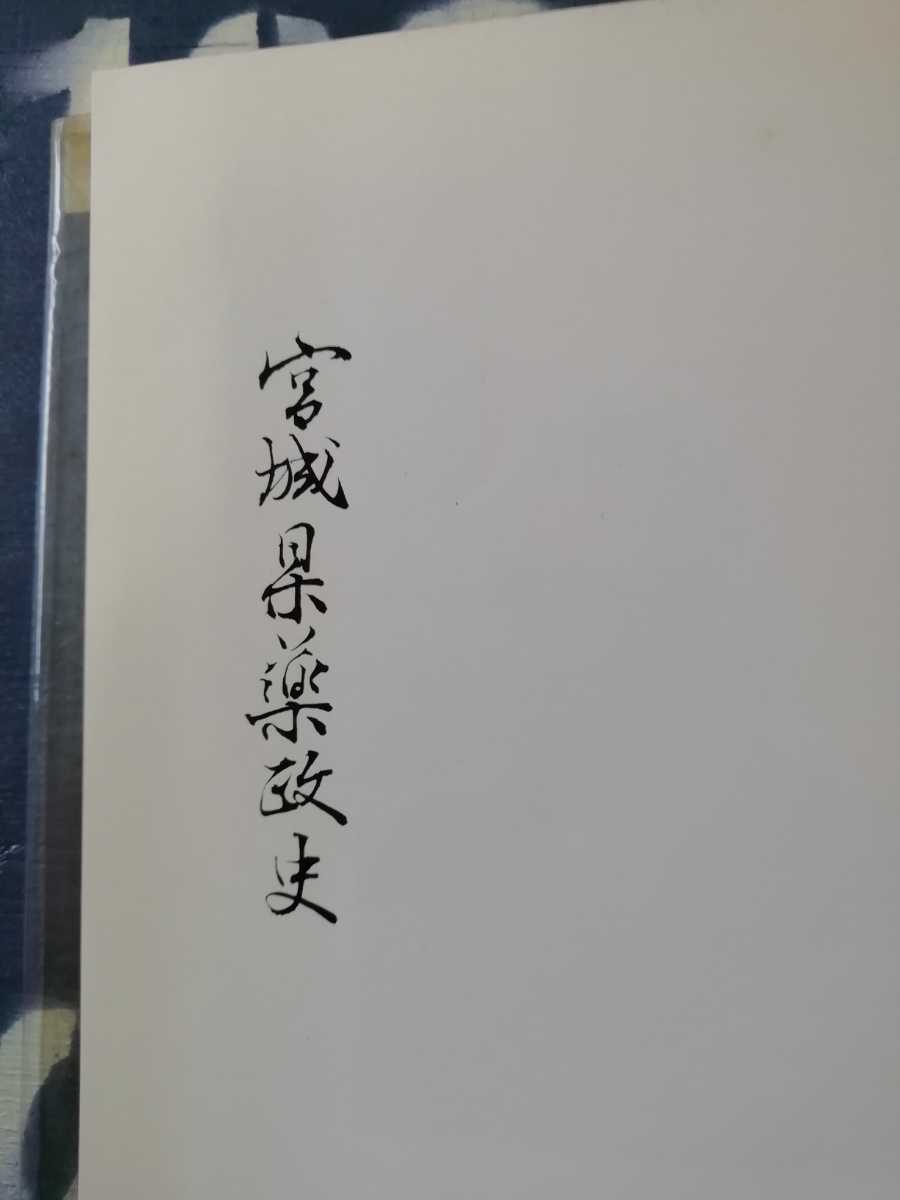 宮城県薬政史